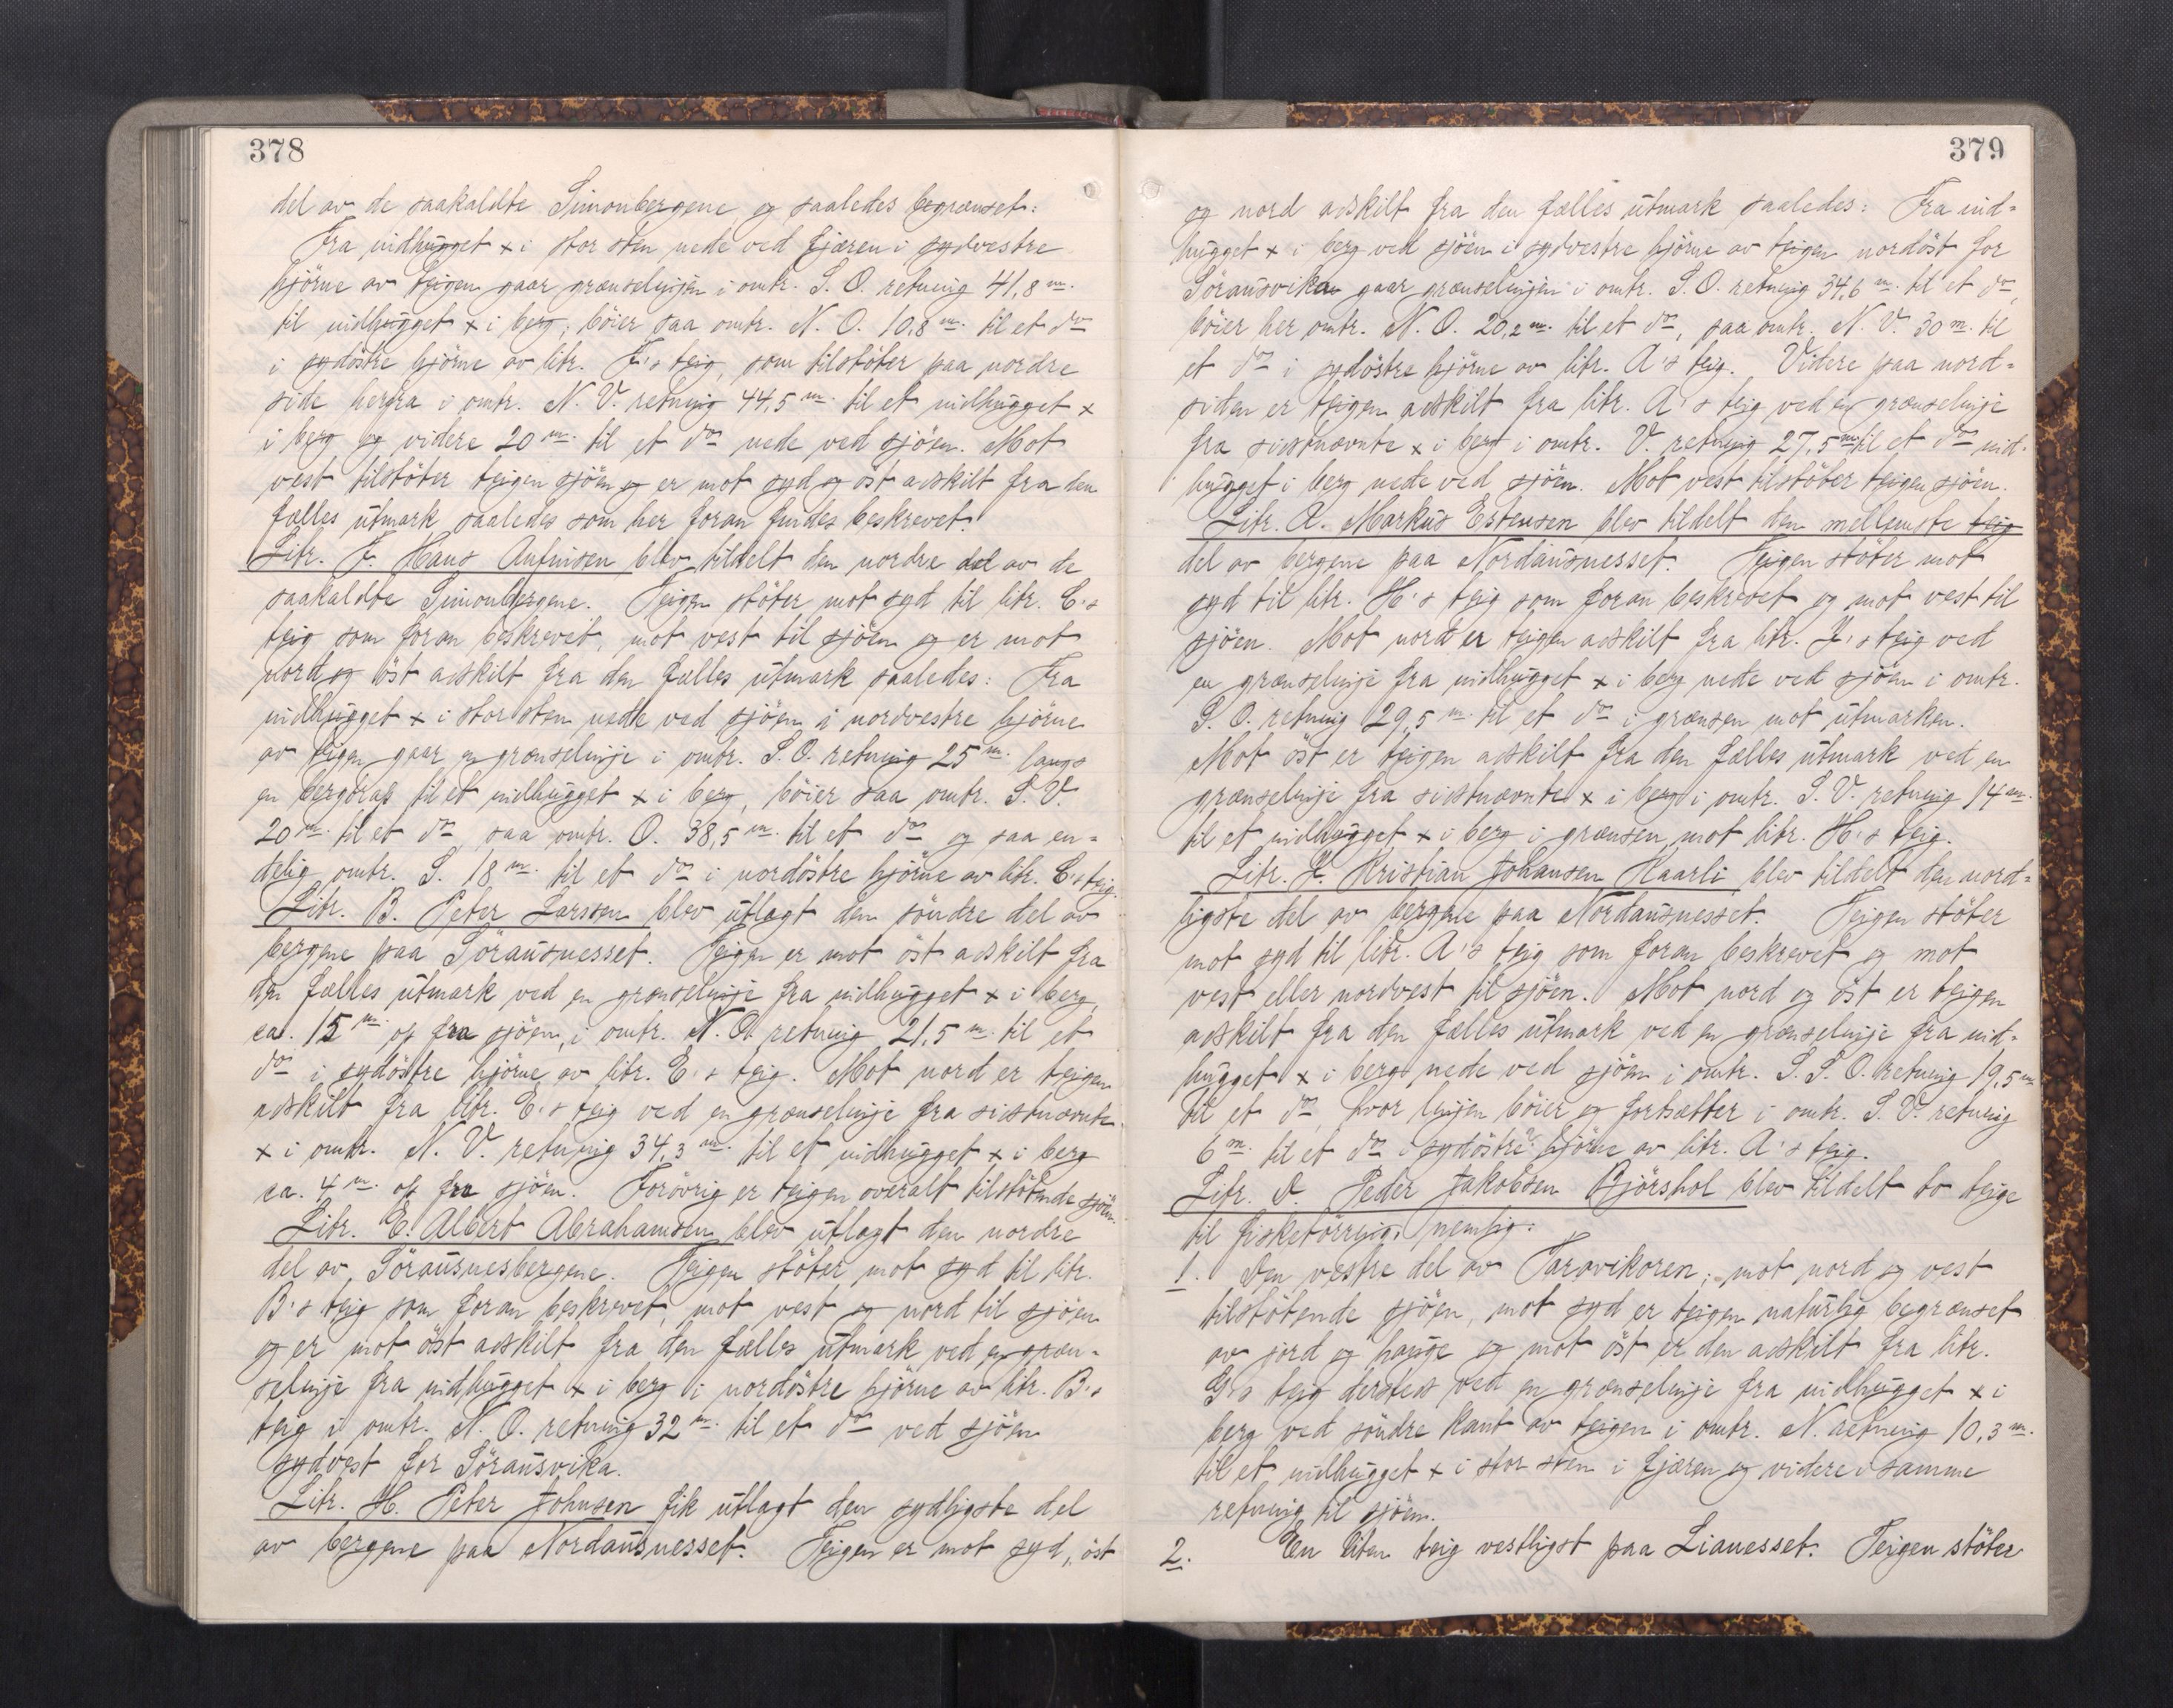 378
del av de saakaldte Simonbergene og saaledes begrænset:
Fra indhugget x i stor sten nede ved fjæren i sydvestre
hjörne av teigen gaar grænselinjen i omtr. S. O. retning 41,8 m.
til indhugget x i berg, böier saa omtr. N. O. 10,8 m. til et do
i sydöstre hjörne av litr. F's teig, som tilstöter paa nordre
side herfra i omtr. N. V. retning 44,5 m. til et indhugget x
i berg og videre 20 m. til et do nede ved sjöen. Mot
vest tilstöter teigen sjöen og er mot syd og öst adskilt fra den
fælles utmark saaledes som her foran findes beskrevet.
Litr. F. Hans Anfinsen blev tildelt den nordre del av de
saakaldte Simonbergene. Teigen stöter mot syd til litr. C's
teig som foran beskrevet, mot vest til sjöen og er mot
nord og öst adskilt fra den fælles utmark saaledes: Fra
indhugget x i stor sten nede ved sjöen i nordvestre hjörne
av teigen gaar en grænselinje i omtr. S. O. retning 25 m. langs
en bergdrag til et indhugget x i berg, böier saa omtr. S. V.
20 m. til et do saa omtr. O. 38,5 m. til et do og saa en=
delig omtr. S. 18 m. til et do i nordöstre hjörne av litr. C's teig.
Litr. B. Peter Larssen blev utlagt den söndre del av
bergene paa Sörausnesset. Teigen er mot öst adskilt fra
den fælles utmark ved en grænselinje fra indhugget x i berg,
ca. 15 m. op fra sjöen, i omtr. N. O. retning 21,5 m. til et
do i sydöstre hjörne av litr. E's teig. Mot nord er teigen
adskilt fra litr. E's teig ved en grænselinje fra sistnævnte
x i omtr. N. V. retning 34,3 m. til et indhugget x i berg
ca. 4 m. op fra sjöen. Forövrig er teigen overalt tilstötende sjöen.
Litr. E. Albert Abrahamsen blev utlagt den nordre
del av Sörausnesbergene. Teigen stöter mot syd til litr.
B's teig som foran beskrevet, mot vest og nord til sjöen
og er mot öst adskilt fra den fælles utmark ved en græn=
selinje fra indhugget x i berg i nordöstre hjörne av litr. B's
teig i omtr. N. O. retning 32 m. til et do ved sjöen
sydvest for Sörausvika.
Litr. H. Peter Johnsen fik utlagt den sydligste del
av bergene paa Nordausnesset. Teigen er mot syd, öst
379
og nord adskilt fra den fælles utmark saaledes: Fra ind=
hugget x i berg ved sjöen i sydvestre hjörne av teigen nordöst for
Sörausvikan gaar grænselinjen i omtr. S. O. retning 34,6 m. til et do,
böier her omtr. N. O. 20,2 m. til et do, saa omtr. N. V. 30 m. til
et do i sydöstre hjörne av litr. A's teig. Videre paa nord=
siden er teigen adskilt fra litr. A's teig ved en grænselinje
fra sistnævnte x i berg i omtr. V. retning 27,5 m. til et do ind=
hugget i berg nede ved sjöen. Mot vest tilstöter teigen sjöen.
Litr. A. Markus Estensen blev tildelt den mellemste teig
del av bergene paa Nordausnesset. Teigen stöter mot
syd til litr. H's teig som foran beskrevet og mot vest til
sjöen. Mot nord er teigen adskilt fra litr. J's teig ved
en grænselinje fra indhugget x i berg nede ved sjöen i omtr.
S. O. retning 29,5 m. til et do i grænsen mot utmarken.
Mot öst er teigen adskilt fra den fælles utmark ved en
grænselinje fra sistnævnte x i berg i omtr. S. V. retning 14 m.
til et indhugget x i berg i grænsen mot litr. H's teig.
Litr. J. Kristian Johansen Haarli blev tildelt den nord=
ligste del av bergene paa Nordausnesset. Teigen stöter
mot syd til litr. A's teig som foran beskrevet og mot
vest eller nordvest til sjöen. Mot nord og öst er teigen
adskilt fra den fælles utmark ved en grænselinje fra ind=
hugget x i berg nede ved sjöen i omtr. S. S. O. retning 19,5 m
til et do, hvor linjen böier og fortsætter i omtr. S. V. retning
6 m. til et do i sydöstre hjörne av litr. A's teig.
Litr. D. Peder Jakobsen Björshol blev tildelt to teige
til fisketörring, nemlig:
1. Den vestre del av Taravikoren; mot nord og vest
tilstötende sjöen, mot syd er teigen naturlig begrænset
av jord og hauge og mot öst er den adskilt fra litr.
G's teig dersteds ved en grænselinje fra indhugget x i
berg ved söndre kant av teigen i omtr. N. retning 10,3 m.
til et indhugget x i stor sten i fjæren og videre i samme
retning til sjöen.
2. En liten teig vestligst paa Lianesset. Teigen stöter